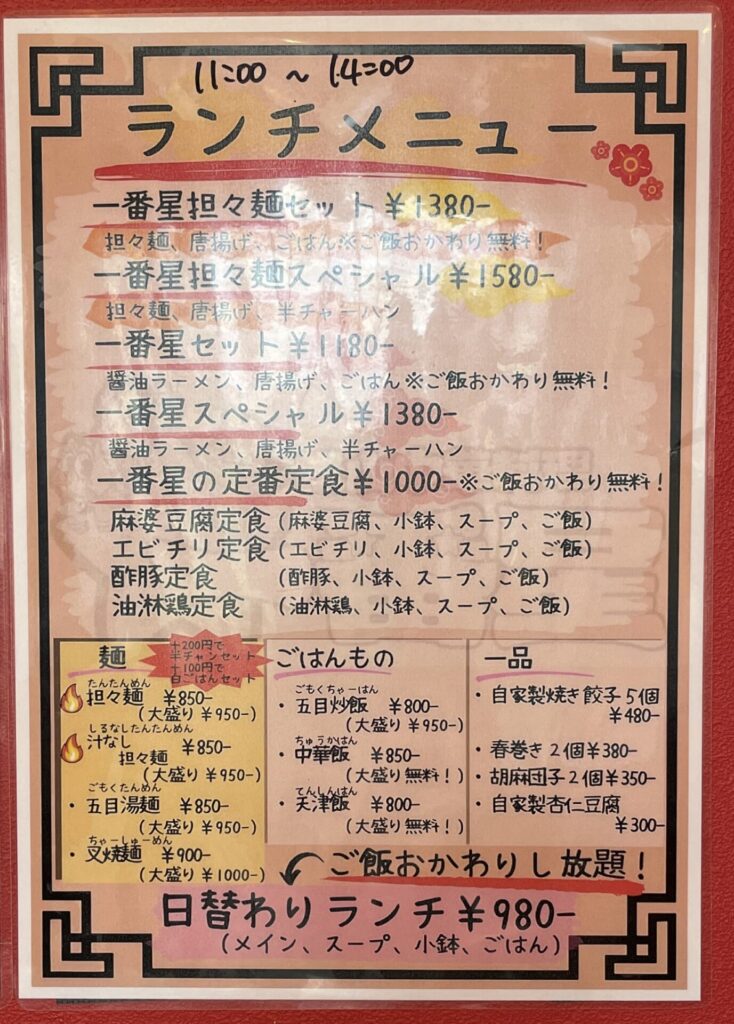 11:00 ~ 14:00
ランチメニュー
一番星担々麺セット¥1380-
担々麺、唐揚げ、ごはん※ご飯おかわり無料!
一番星担々麺スペシャル¥1580-
担々麺、唐揚げ、半チャーハン
一番星セット¥1180-
醤油ラーメン、唐揚げ、ごはん※ご飯おかわり無料!
一番星スペシャル¥1380-
醤油ラーメン、唐揚げ、半チャーハン
一番星の定番定食¥1000-※ご飯おかわり無料!
麻婆豆腐定食(麻婆豆腐、小鉢、スープ、ご飯)
エビチリ定食(エビチリ、小鉢、スープ、ご飯)
酢豚定食(酢豚、小鉢、スープ、ご飯)
油淋鶏定食(油淋鶏、小鉢、スープ、ご飯)
麺
+200円で
半チャンセット
+100円で
白ごはんセット
たんたんめん
担々麺 ¥850-
(大盛り¥950-)
しるなしたんたんめん
汁なし ¥850-
担々麺
(大盛り¥950-)
ごもくたんめん
・五目湯麺 ¥850-
(大盛り¥950-)
ちゃーしゅーめん
・叉焼麺 ¥900-
(大盛り¥1000-)
ごはんもの
ごもくちゃーはん
・五目炒飯 ¥800-
(大盛り¥950-)
ちゅうかはん
・中華飯 ¥850-
(大盛り無料!)
てんしんはん
・天津飯 ¥800-
(大盛り無料!)
一品
・自家製焼き餃子5個
¥480-
・春巻き2個¥380-
・胡麻団子2個¥350-
・自家製杏仁豆腐
¥300-
ご飯おかわりし放題!
日替わりランチ¥980-
(メイン、スープ、小鉢、ごはん)